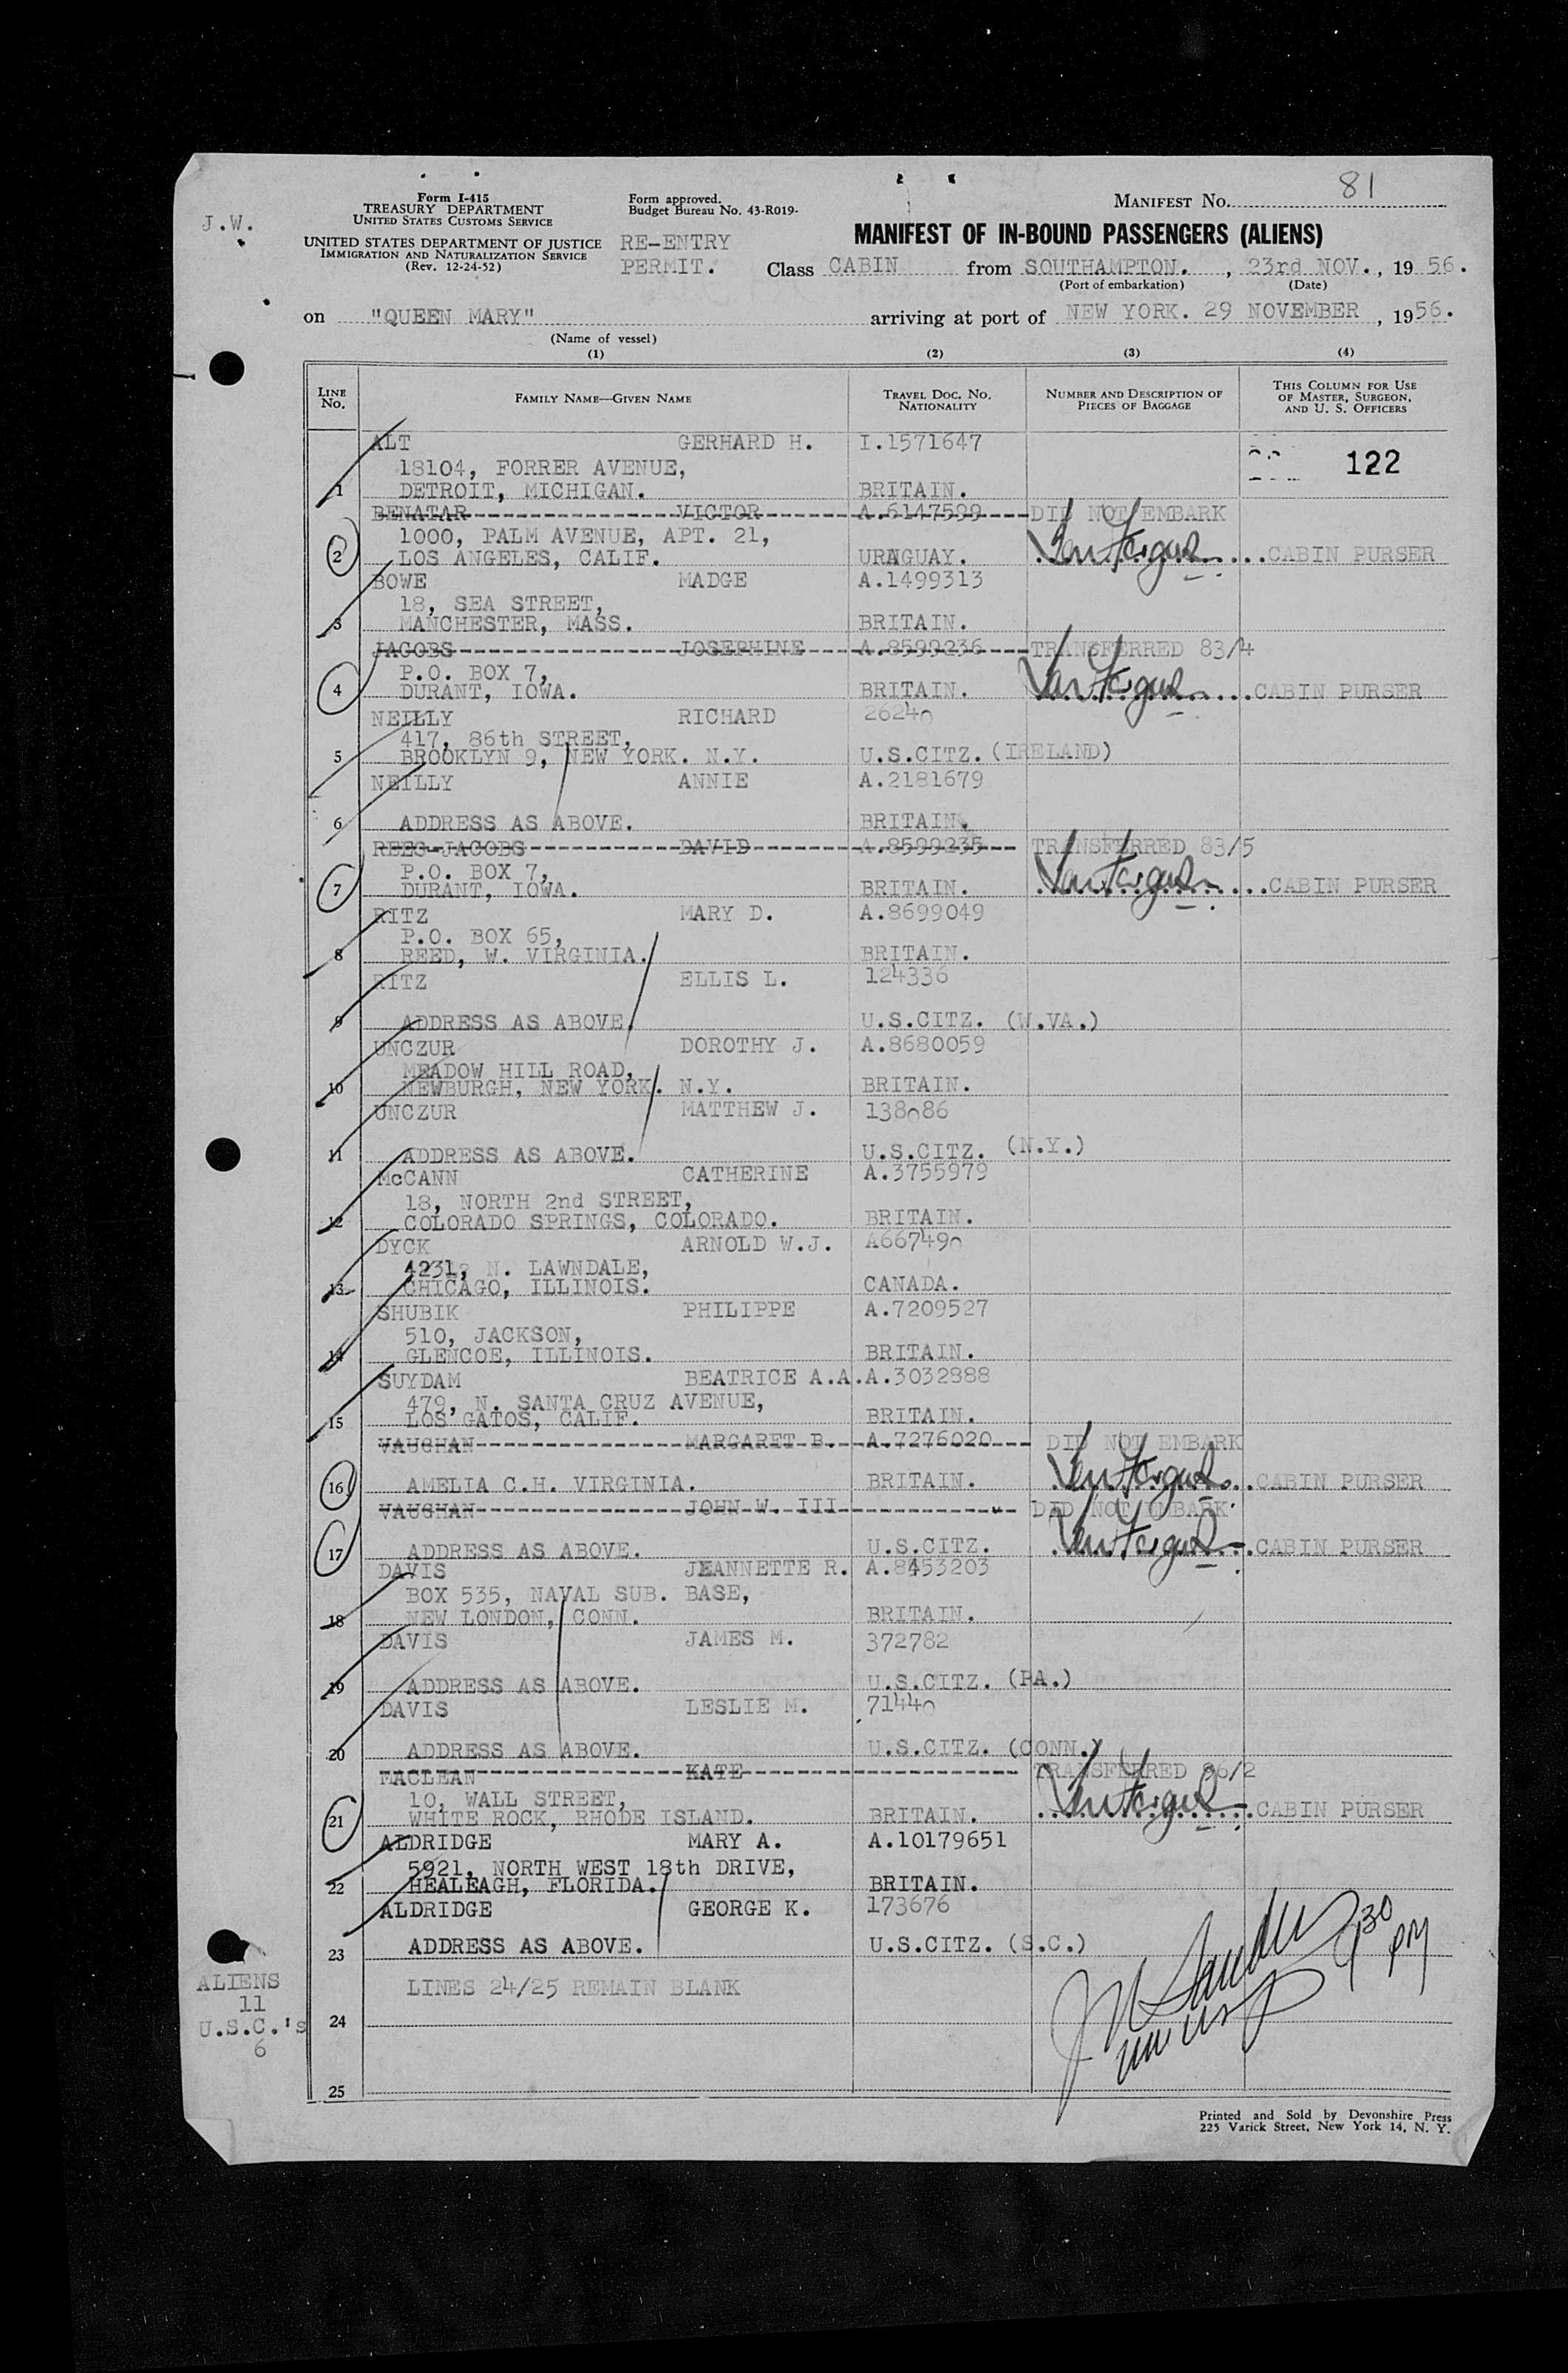 J.W.
Form I-415
TREASURY DEPARTMENT
UNITED STATES CUSTOMS SERVICE
UNITED STATES DEPARTMENT OF JUSTICE
IMMIGRATION AND NATURALIZATION SERVICE
(Rev. 12-24-52)
Form approved.
Budget Bureau No. 43-R019-
RE-ENTRY
PERMIT.
MANIFEST NO. 81
MANIFEST OF IN-BOUND PASSENGERS (ALIENS)
Class CABIN from SOUTHAMPTON. , 23rd NOV. , 19 56.
(Port of embarkation) (Date)
on "QUEEN MARY" arriving at port of NEW YORK. 29 NOVEMBER , 1956.
(Name of vessel)
(1) (2) (3) (4)
LINE NO. FAMILY NAME—GIVEN NAME TRAVEL DOC. NO. NATIONALITY NUMBER AND DESCRIPTION OF PIECES OF BAGGAGE THIS COLUMN FOR USE OF MASTER, SURGEON, AND U. S. OFFICERS
ALT GERHARD H. I.1571647
18104, FORRER AVENUE, 122
1 DETROIT, MICHIGAN. BRITAIN.
BENATAR VICTOR A.6147599 DID NOT EMBARK
1000, PALM AVENUE, APT. 21,
2 LOS ANGELES, CALIF. URAGUAY. CABIN PURSER
BOWE MADGE A.1499313
18, SEA STREET,
3 MANCHESTER, MASS. BRITAIN.
JACOBS JOSEPHINE A.8599236 TRANSFERRED 83/4
P.O. BOX 7,
4 DURANT, IOWA. BRITAIN. CABIN PURSER
NEILLY RICHARD 26240
417, 86th STREET,
5 BROOKLYN 9, NEW YORK. N.Y. U.S.CITZ. (IRELAND)
NEILLY ANNIE A.2181679
6 ADDRESS AS ABOVE. BRITAIN.
REES-JACOBS DAVID A.8599235 TRANSFERRED 83/5
P.O. BOX 7,
7 DURANT, IOWA. BRITAIN. CABIN PURSER
RITZ MARY D. A.8699049
P.O. BOX 65,
8 REED, W. VIRGINIA. BRITAIN.
RITZ ELLIS L. 124336
9 ADDRESS AS ABOVE. U.S.CITZ. (W.VA.)
UNCZUR DOROTHY J. A.8680059
MEADOW HILL ROAD,
10 NEWBURGH, NEW YORK. N.Y. BRITAIN.
UNCZUR MATTHEW J. 138086
11 ADDRESS AS ABOVE. U.S.CITZ. (N.Y.)
McCANN CATHERINE A.3755979
18, NORTH 2nd STREET,
12 COLORADO SPRINGS, COLORADO. BRITAIN.
DYCK ARNOLD W.J. A667490
4231, N. LAWNDALE,
13 CHICAGO, ILLINOIS. CANADA.
SHUBIK PHILIPPE A.7209527
510, JACKSON,
14 GLENCOE, ILLINOIS. BRITAIN.
SUYDAM BEATRICE A.A. A.3032888
479, N. SANTA CRUZ AVENUE,
15 LOS GATOS, CALIF. BRITAIN.
VAUGHAN MARGARET B. A.7276020 DID NOT EMBARK
16 AMELIA C.H. VIRGINIA. BRITAIN. CABIN PURSER
VAUGHAN JOHN W. III DID NOT EMBARK
17 ADDRESS AS ABOVE. U.S.CITZ. CABIN PURSER
DAVIS JEANNETTE R. A.8453203
BOX 535, NAVAL SUB. BASE,
18 NEW LONDON, CONN. BRITAIN.
DAVIS JAMES M. 372782
19 ADDRESS AS ABOVE. U.S.CITZ. (PA.)
DAVIS LESLIE M. 71440
20 ADDRESS AS ABOVE. U.S.CITZ. (CONN.)
MACLEAN KATE TRANSFERRED 86/2
10, WALL STREET,
21 WHITE ROCK, RHODE ISLAND. BRITAIN. CABIN PURSER
ALDRIDGE MARY A. A.10179651
5921, NORTH WEST 18th DRIVE,
22 HEALEAGH, FLORIDA. BRITAIN.
ALDRIDGE GEORGE K. 173676
23 ADDRESS AS ABOVE. U.S.CITZ. (S.C.)
LINES 24/25 REMAIN BLANK
24
25
ALIENS
11
U.S.C.'s
6
PM
Printed and Sold by Devonshire Press
225 Varick Street, New York 14, N. Y.